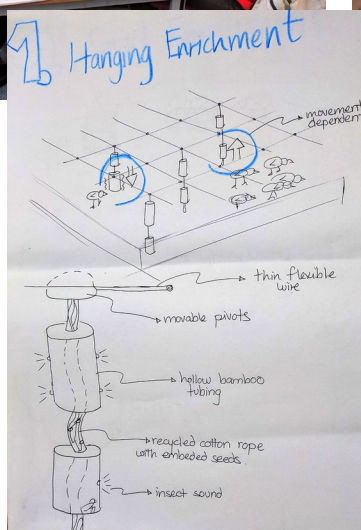 1. Hanging Enrichment
movement
dependent
thin flexible
wire
movable pivots
hollow bamboo
tubing
recycled cotton rope
with embeded seeds.
insect sound